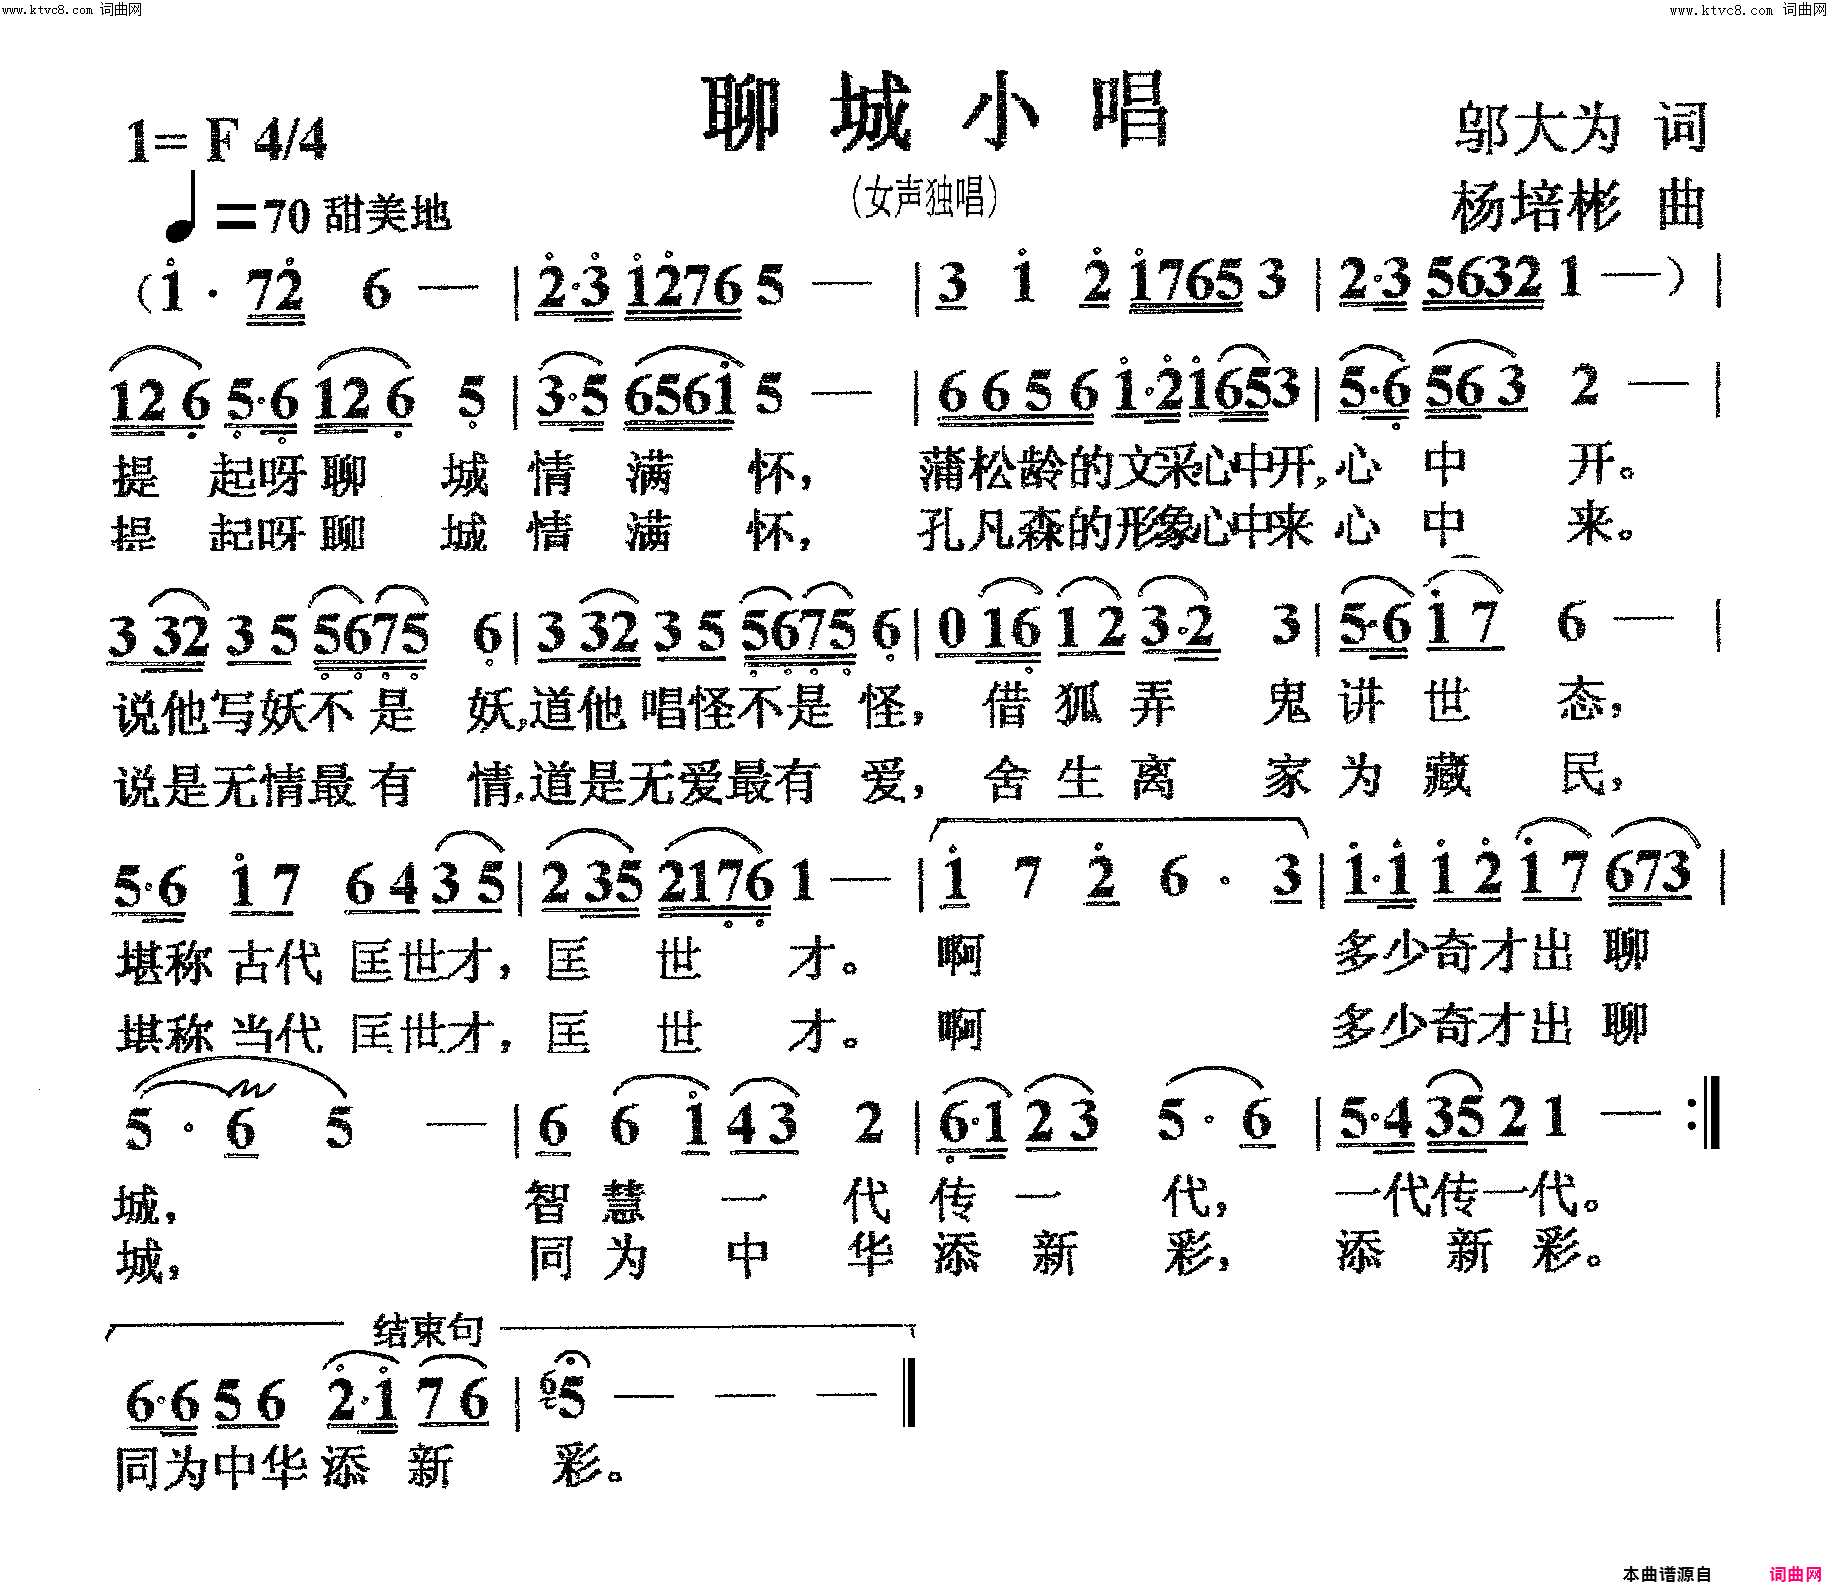 www.ktvc8.com 词曲网 www.ktvc8.com 词曲网
聊城小唱
1= F 4/4 邬大为 词
(女声独唱)
♩=70 甜美地 杨培彬 曲
(1̇ · 72̇ 6 — | 2̇·3̇ 1̇2̇76 5 — | 3 1̇ 2̇ 1̇765 3 | 2·3 5632 1 — ) |
126̣ 5̣·6̣ 126̣ 5̣ | 3·5 6561̇ 5 — | 6 6 5 6 1̇·2̇ 1̇653 | 5·6̣ 563 2 — |
提 起呀聊 城 情 满 怀, 蒲松龄的文采心中开,心 中 开。
提 起呀聊 城 情 满 怀, 孔凡森的形象心中来 心 中 来。
3 32 3 5 5̣6̣7̣5̣ 6̣ | 3 32 3 5 5̣6̣7̣5̣ 6̣ | 0 16̣ 1 2 3·2 3 | 5·6 1̇ 7 6 — |
说他写妖不 是 妖,道他 唱怪不是 怪, 借 狐 弄 鬼 讲 世 态,
说是无情最 有 情,道是无爱最有 爱, 舍 生 离 家 为 藏 民,
5·6 1̇ 7 6 4 3 5 | 2 35 217̣6̣ 1 — | 1̇ 7 2̇ 6 · 3 | 1̇·1̇ 1̇ 2̇ 1̇ 7 673 |
堪称 古代 匡世才, 匡 世 才。 啊 多少奇才出 聊
堪称 当代 匡世才, 匡 世 才。 啊 多少奇才出 聊
5 · 6 5 — | 6 6 1̇ 4 3 2 | 6̣·1 2 3 5 · 6 | 5·4 352 1 — :‖
城, 智 慧 一 代 传 一 代, 一代传一代。
城, 同 为 中 华 添 新 彩, 添 新 彩。
结束句
6·6 5 6 2̇·1̇ 7 6 | 65 — — — ‖
同为中华 添 新 彩。
本曲谱源自 词曲网